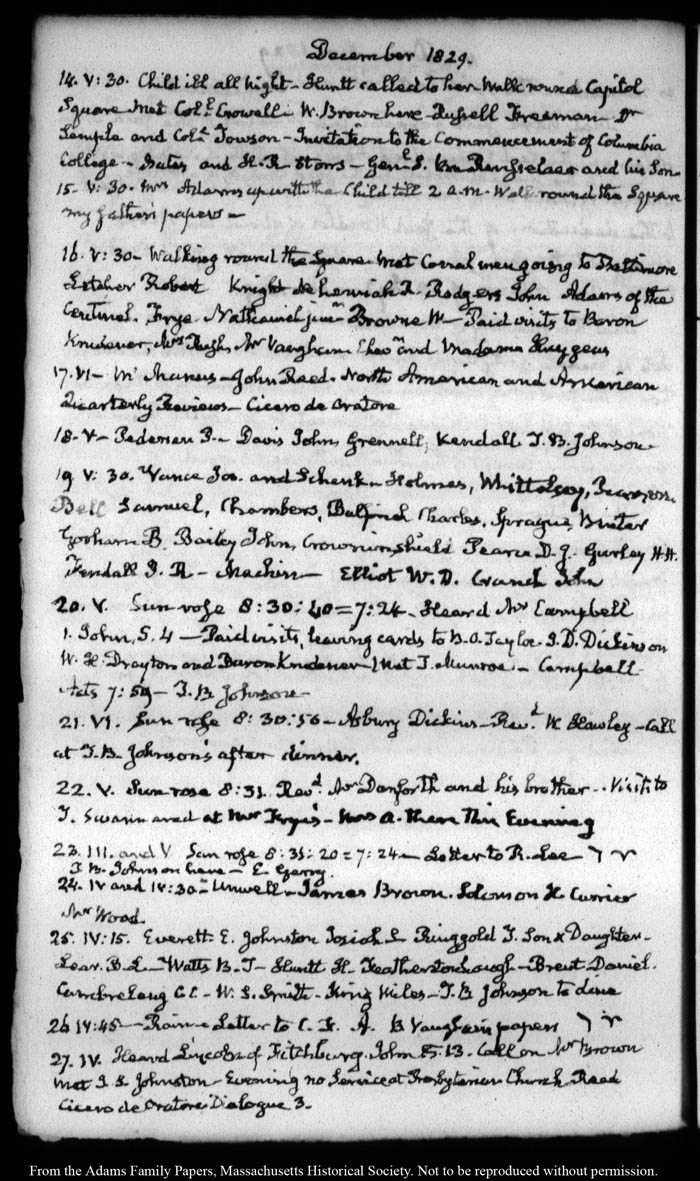 December 1829.
14. V: 30. Child ill all night - Huntt called to her Walk round Capitol
Square Met Coll. Crowell - W. Brown here - Russell Freeman Dr
Semple and Coll. Towson - Invitation to the Commencement of Columbia
College - Gates and H. R. Storrs - Genl. S. Van Rensselaer and his Son
15. V: 30. Mrs Adams up with the Child till 2 a.m. Walk round the Square
my father's papers -
16. V: 30 - Walking round the Square met Corral men going to Baltimore
Letcher Robert Knight Nehemiah R. Rodgers John Adams of the
Centinel. Frye. Nathaniel junr. Browne W - Paid visits to Baron
Krudener, Mrs Pugh, Mr Vaughan. Chevr. and Madame Huygens
17. VI - Mc Manus - John Reed. North American and American
Quarterly Reviews - Cicero de Oratore
18. V - Pederson P. - Davis John, Grennell, Kendall J. B. Johnson -
19 V: 30. Vance Jos. and Schenk - Holmes, Whittlesey,
Bell Samuel, Chambers, Bulfinch Charles, Sprague,
Gorham B. Bailey John, Crowninshield Pearce D. J. Gurley H. H.
Fendall P. R - Machin - Elliot W. D. Cranch John
20. V. Sun rose 8: 30: 40 = 7: 24. Heard Mr Campbell
1. John, 5. 4 - Paid visits, leaving cards to B. O. Tayloe. J. D. Dickinson
W. H. Drayton and Baron Krudener / Met J. Munroe - Campbell
Acts 7: 59 - J. B Johnson -
21. VI. Sun rose 8: 30: 56 - Asbury Dickins - Revd. W Hawley - Call
at J. B. Johnson's after dinner.
22. V. Sun rose 8: 31 Revd. Mr Danforth and his brother - Visits to
T. Swann and at Mr Frye's - Mrs A. there this Evening
23. III. and V Sun rose 8: 31: 20 = 7: 24 - Letter to R. Lee
J. B. Johnson here - E. Gerry.
24. IV and IV: 30 - Unwell - James Brown. Solomon H Currier
Mr Wood.
25. IV: 15. Everett E. Johnston Josiah S Ringgold T. Son & Daughter -
Lear. B. L - Watts B. T - Huntt H. Featherstonhaugh - Brent Daniel.
Cambreleng C C - W. S. Smith - King Miles - J. B Johnson to dine
26 IV: 45 - Rain - Letter to C. F. A. B Vaughan papers
27. IV. Heard Lincoln of Fitchburg. John 5. 13. Call on Mr Brown
Met J. S. Johnston - Evening no Service at Presbyterian Church Read
Cicero de Oratore Dialogue 3.
From the Adams Family Papers, Massachusetts Historical Society. Not to be reproduced without permission.